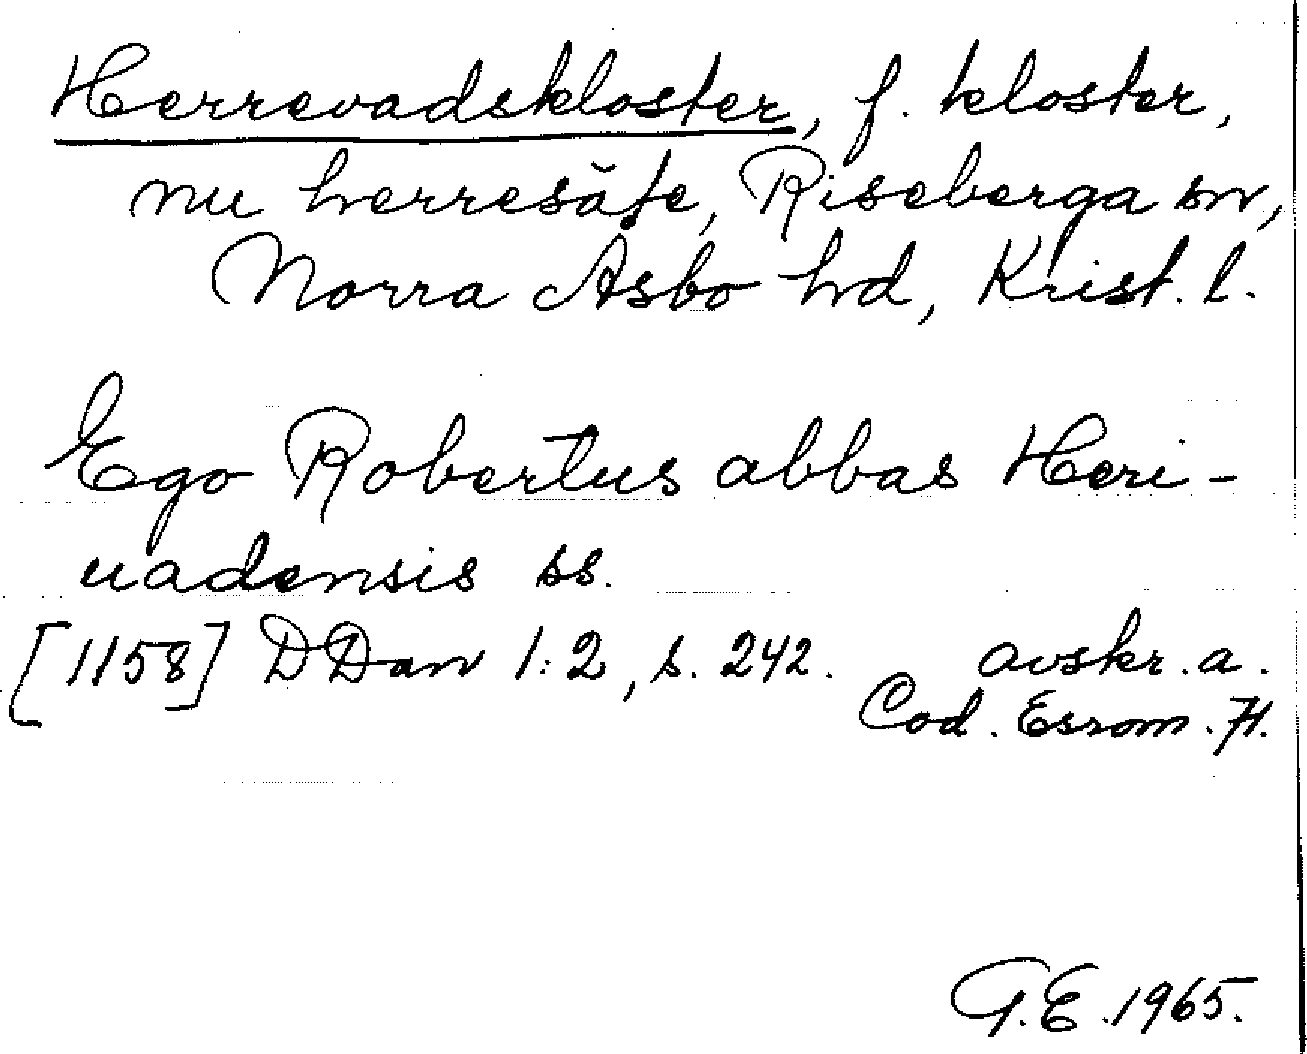 Herrevadskloster, f. kloster,
nu herresäte, Riseberga sn,
Norra Åsbo hd, Krist. l.
Ego Robertus abbas Heri-
uadensis ss.
[1158] DDan 1:2, s. 242. avskr. a.
Cod. Esrom. H.
G.E. 1965.